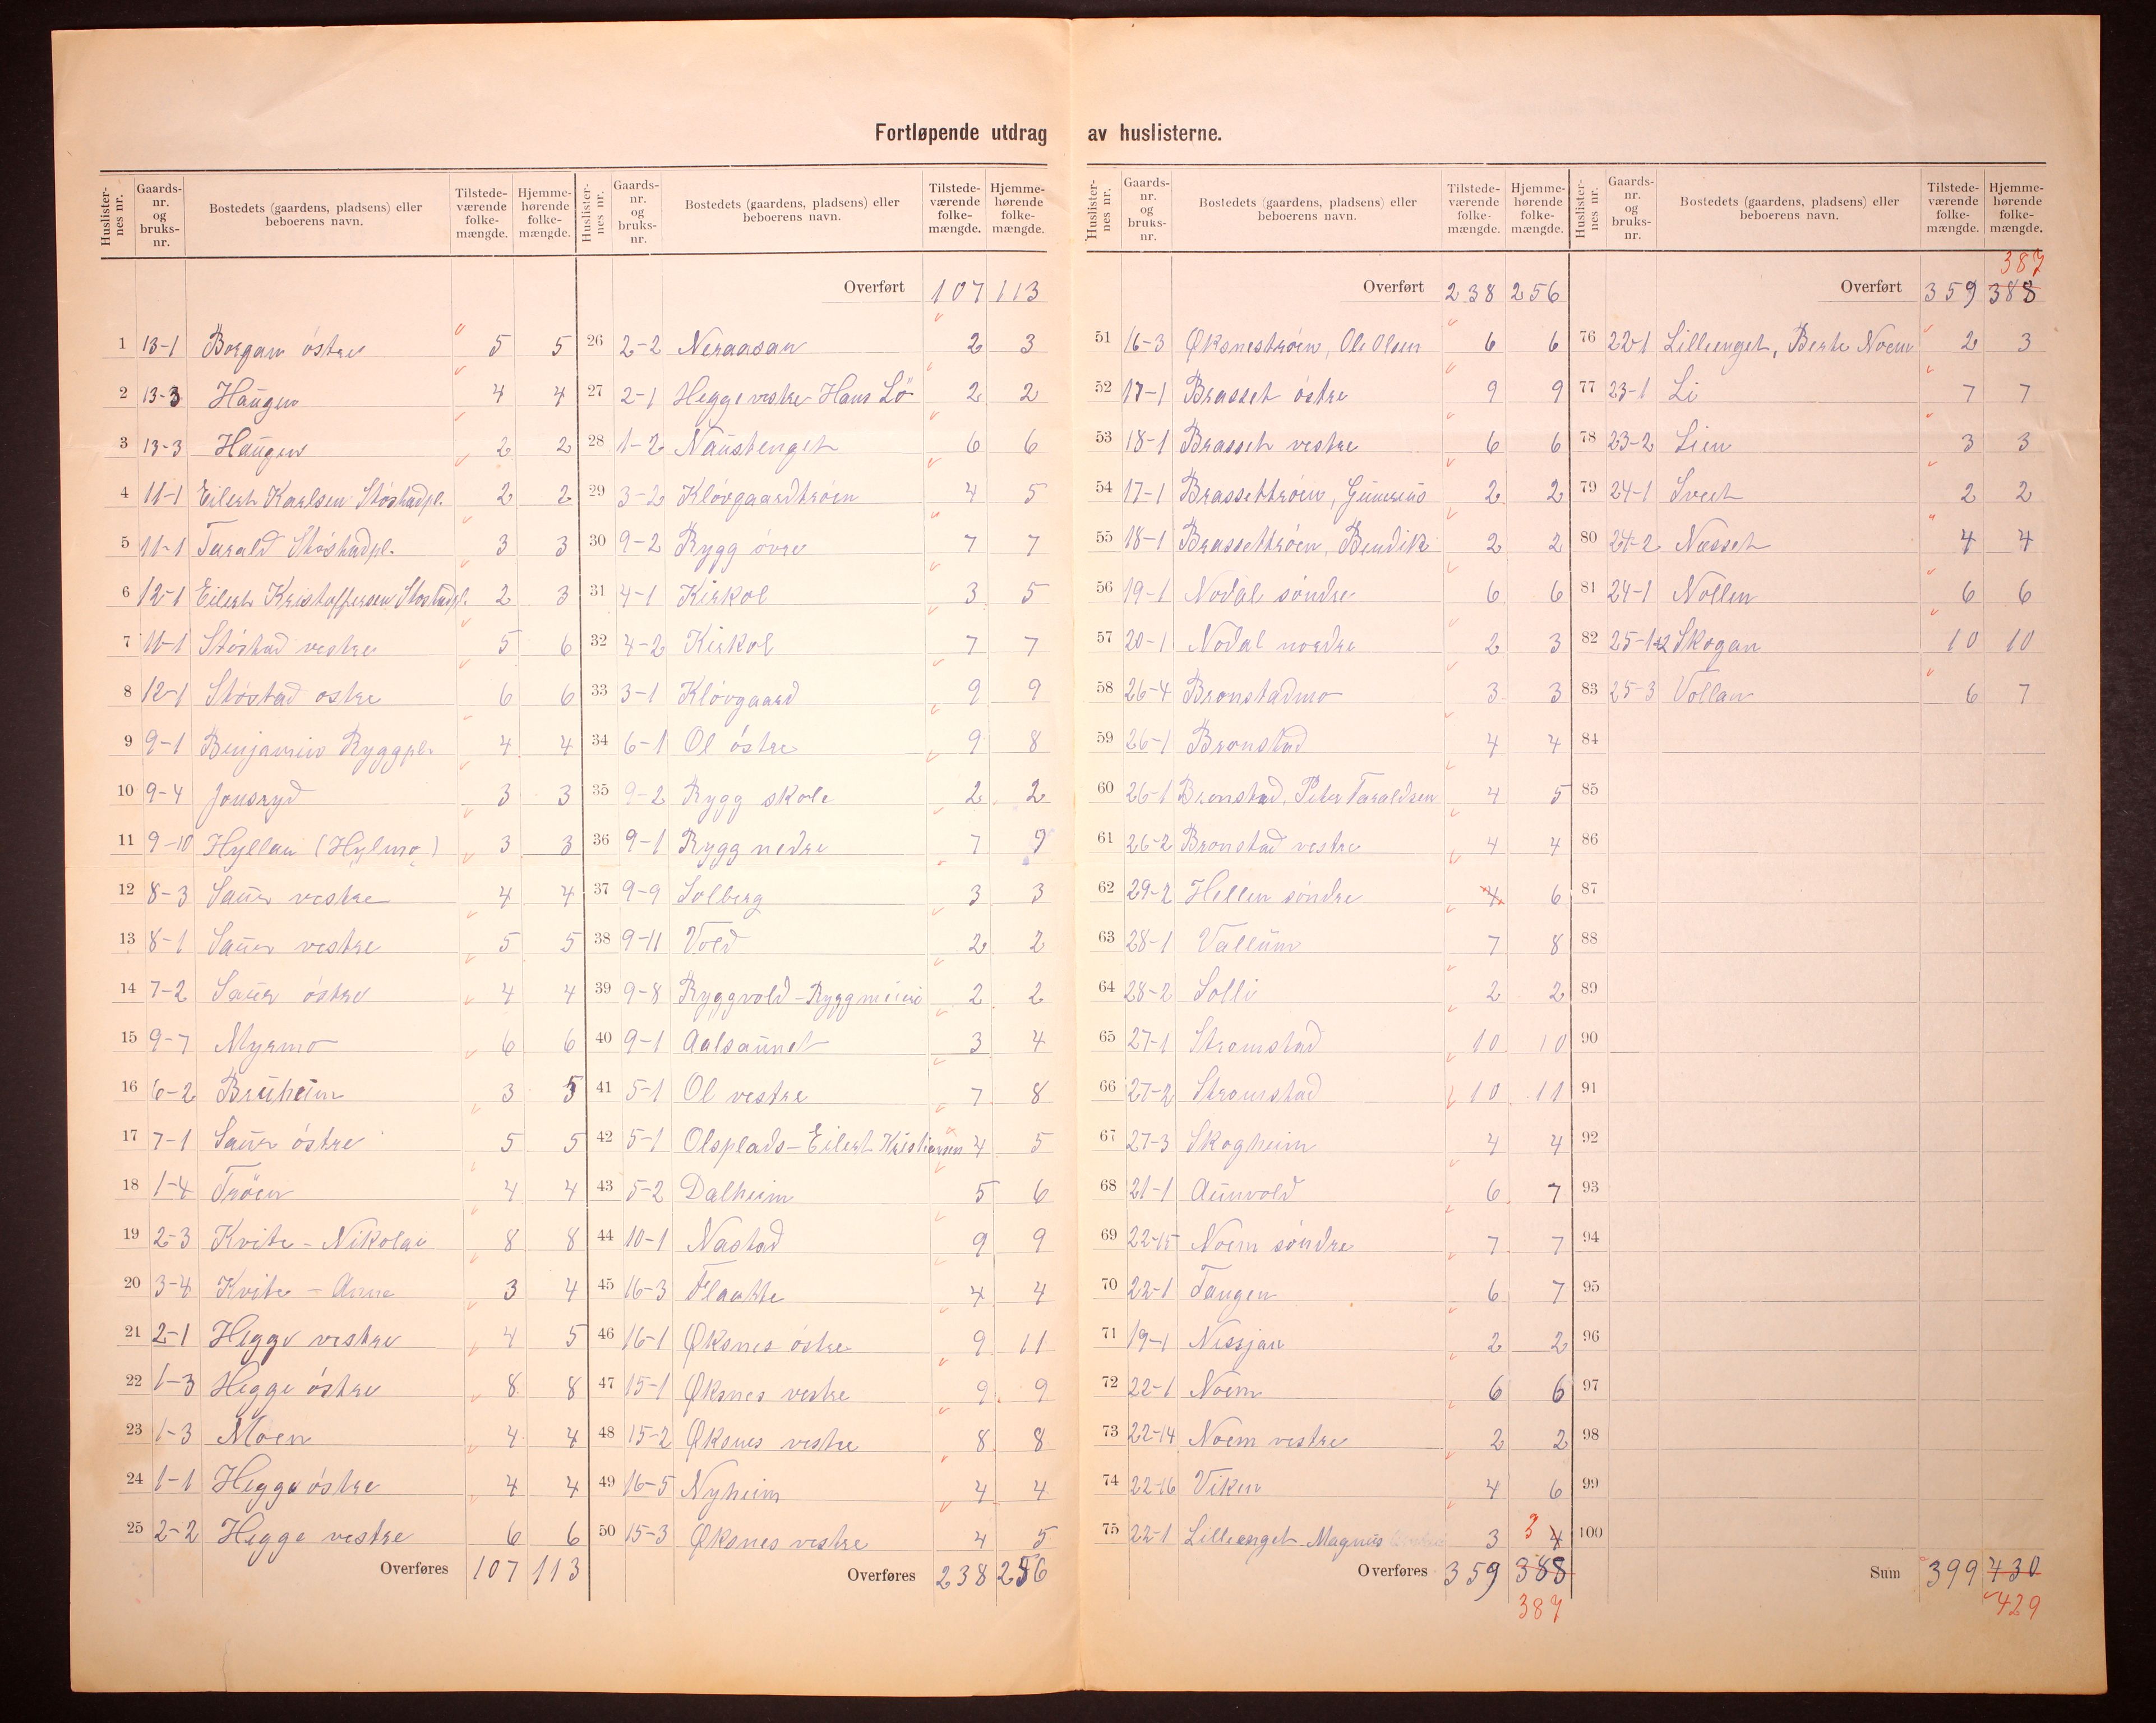 Fortløpende utdrag av huslisterne.
Huslisternes nr. Gaardsnr. og bruksnr. Bostedets (gaardens, pladsens) eller beboerens navn. Tilstedeværende folkemængde. Hjemmehørende folkemængde.
1 13-1 Borgan östre 5 5
2 13-3 Haugen 4 4
3 13-3 Haugen 2 2
4 11-1 Eilert Karlsen Stöstadpl. 2 2
5 11-1 Tarald Stöstadpl. 3 3
6 12-1 Eilert Kristoffersen Stöstadpl. 2 3
7 11-1 Stöstad vestre 5 6
8 12-1 Stöstad ostre 6 6
9 9-1 Benjamin Ryggpl. 4 4
10 9-4 Jonsryd 3 3
11 9-10 Hyllan (Hylmo) 3 3
12 8-3 Saur vestre 4 4
13 8-1 Saur vestre 5 5
14 7-2 Saur östre 4 4
15 9-7 Myrmo 6 6
16 6-2 Bruheim 3 5
17 7-1 Saur östre 5 5
18 1-4 Tröen 4 4
19 2-3 Kvite - Nikolai 8 8
20 3-4 Kvite - Anna 3 4
21 2-1 Hegge vestre 4 5
22 1-3 Hegge östre 8 8
23 1-3 Moen 4 4
24 1-1 Hegge östre 4 4
25 2-2 Hegge vestre 6 6
Overføres 107 113
Huslisternes nr. Gaardsnr. og bruksnr. Bostedets (gaardens, pladsens) eller beboerens navn. Tilstedeværende folkemængde. Hjemmehørende folkemængde.
Overført 107 113
26 2-2 Neraasan 2 3
27 2-1 Hegge vestre Hans Lö 2 2
28 1-2 Naustenget 6 6
29 3-2 Klövgaardtröen 4 5
30 9-2 Rygg övre 7 7
31 4-1 Kirkol 3 5
32 4-2 Kirkol 7 7
33 3-1 Klövgaard 9 9
34 6-1 Ol östre 9 8
35 9-2 Rygg skole 2 2
36 9-1 Rygg nedre 7 9
37 9-9 Solberg 3 3
38 9-11 Vold 2 2
39 9-8 Ryggvold - Ryggmeieri 2 2
40 9-1 Aalsaunet 3 4
41 5-1 Ol vestre 7 8
42 5-1 Olsplads - Eilert Kristiansen 4 5
43 5-2 Dalheim 5 6
44 10-1 Nastad 9 9
45 16-3 Flaatte 4 4
46 16-1 Øksnes östre 9 11
47 15-1 Øksnes vestre 9 9
48 15-2 Øksnes vestre 8 8
49 16-5 Nyheim 4 4
50 15-3 Øksnes vestre 4 5
Overføres 238 256
Huslisternes nr. Gaardsnr. og bruksnr. Bostedets (gaardens, pladsens) eller beboerens navn. Tilstedeværende folkemængde. Hjemmehørende folkemængde.
Overført 238 256
51 16-3 Øksneströen, Ole Olsen 6 6
52 17-1 Brasset östre 9 9
53 18-1 Brasset vestre 6 6
54 17-1 Brassettröen, Gunerius 2 2
55 18-1 Brassettröen, Bendik 2 2
56 19-1 Nodal söndre 6 6
57 20-1 Nodal nordre 2 3
58 26-4 Bronstadmo 3 3
59 26-1 Bronstad 4 4
60 26-1 Bronstad, Peter Taraldsen 4 5
61 26-2 Bronstad vestre 4 4
62 29-2 Hellem söndre 4 6
63 28-1 Vallum 7 8
64 28-2 Solli 2 2
65 27-1 Stromstad 10 10
66 27-2 Stromstad 10 11
67 27-3 Skogheim 4 4
68 21-1 Aunvold 6 7
69 22-15 Noem söndre 7 7
70 22-1 Tangen 6 7
71 19-1 Nessjan 2 2
72 22-1 Noem 6 6
73 22-14 Noem vestre 2 2
74 22-16 Viken 4 6
75 22-1 Lilleenget Magnus 3 3 4
Overføres 359 388
387
Huslisternes nr. Gaardsnr. og bruksnr. Bostedets (gaardens, pladsens) eller beboerens navn. Tilstedeværende folkemængde. Hjemmehørende folkemængde.
387
Overført 359 388
76 22-1 Lilleenget, Berte Noem 2 3
77 23-1 Li 7 7
78 23-2 Lien 3 3
79 24-1 Sveet 2 2
80 24-2 Nesset 4 4
81 24-1 Nollen 6 6
82 25-1+2 Skogan 10 10
83 25-3 Vollan 6 7
84
85
86
87
88
89
90
91
92
93
94
95
96
97
98
99
100
Sum 399 430
429